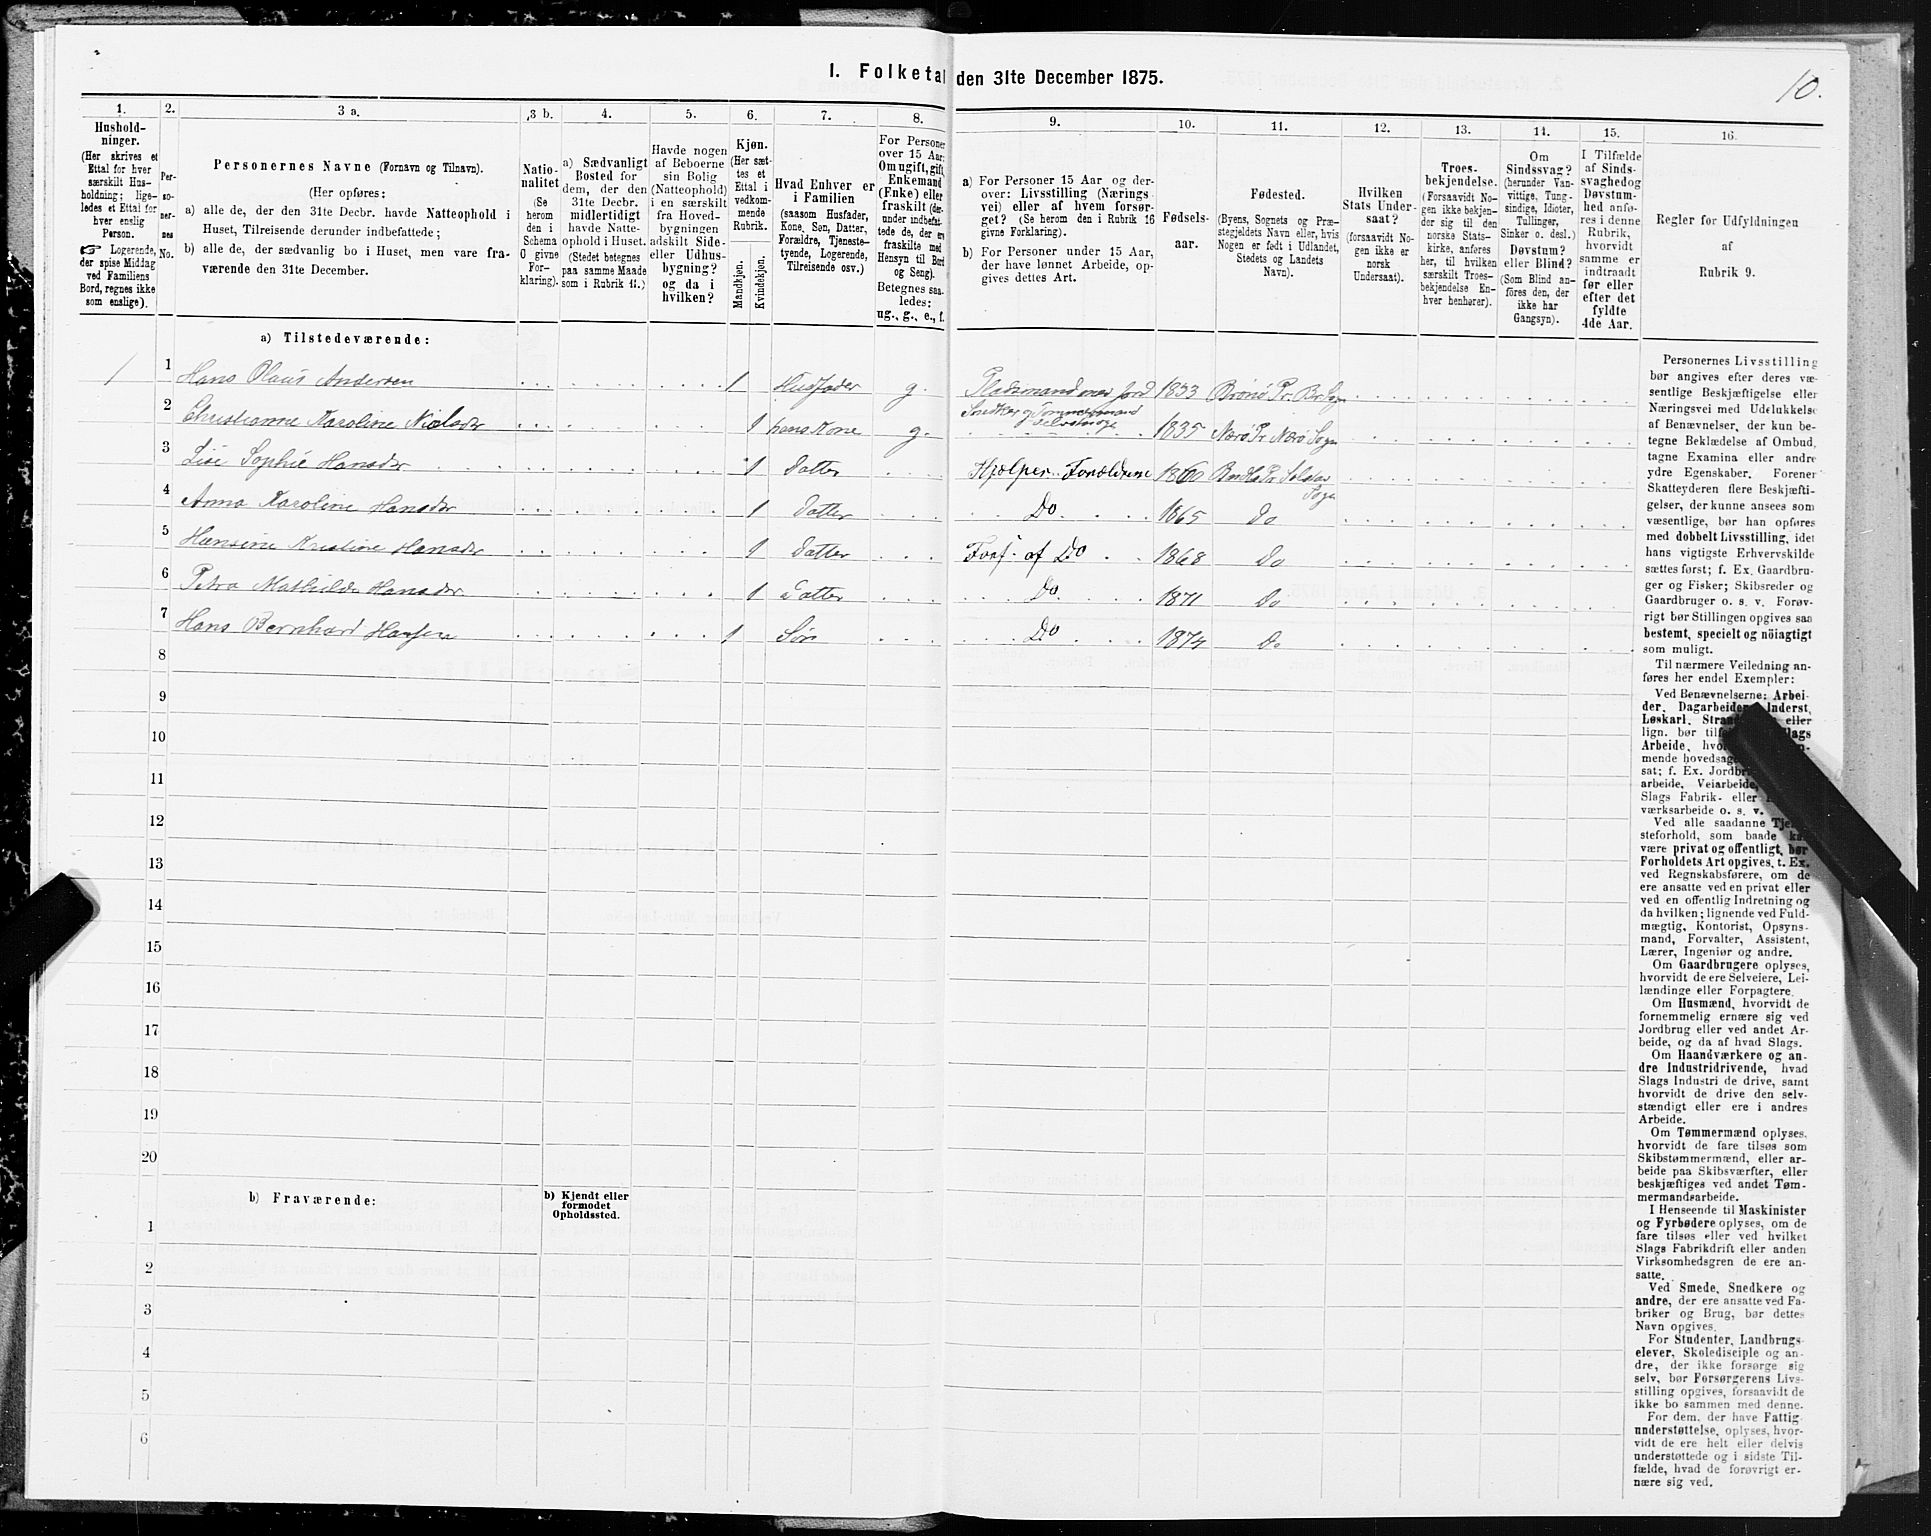 I. Folketal den 31te December 1875.
10.
1.
Hushold-
ninger.
(Her skrives et
Ettal for hver
særskilt Hus-
holdning; lige-
ledes et Ettal for
hver enslig
Person.
☞ Logerende,
der spise Middag
ved Familiens
Bord, regnes ikke
som enslige).
2.
Per-
so-
ner-
nes
No.
3 a.
Personernes Navne (Fornavn og Tilnavn).
(Her opføres:
a) alle de, der den 31te Decbr. havde Natteophold i
Huset, Tilreisende derunder indbefattede;
b) alle de, der sædvanlig bo i Huset, men vare fra-
værende den 31te December.
3 b.
Natio-
nalitet
(Se
herom
den i
Schema
O givne
For-
klaring).
4.
a) Sædvanligt
Bosted for
dem, der den
31te Decbr.
midlertidigt
havde Natte-
ophold i Huset.
(Stedet betegnes
paa samme Maade
som i Rubrik 11.)
5.
Havde nogen
af Beboerne
sin Bolig
(Natteophold)
i en særskilt
fra Hoved-
bygningen
adskilt Side-
eller Udhus-
bygning?
og da i
hvilken?
6.
Kjøn.
(Her sæt-
tes et
Ettal i
vedkom-
mende
Rubrik.
Mandkjøn.
Kvindekjøn.
7.
Hvad Enhver er
i Familien
(saasom Husfader,
Kone, Søn, Datter,
Forældre, Tjeneste-
tyende, Logerende,
Tilreisende osv.)
8.
For Personer
over 15 Aar:
Om ugift, gift,
Enkemand
(Enke) eller
fraskilt (der-
under indbefat-
tede de, der ere
fraskilte med
Hensyn til Bord
og Seng).
Betegnes saa-
ledes:
ug., g., e., f.
9.
a) For Personer 15 Aar og der-
over: Livsstilling (Nærings-
vei) eller af hvem forsør-
get? (Se herom den i Rubrik 16
givne Forklaring).
b) For Personer under 15 Aar,
der have lønnet Arbeide, op-
gives dettes Art.
10.
Fødsels-
aar.
11.
Fødested.
(Byens, Sognets og Præ-
stegjeldets Navn eller, hvis
Nogen er født i Udlandet,
Stedets og Landets
Navn).
12.
Hvilken
Stats Under-
saat?
(forsaavidt No-
gen ikke er
norsk
Undersaat).
13.
Troes-
bekjendelse.
(Forsaavidt No-
gen ikke bekjen-
der sig til den
norske Stats-
kirke, anføres
her, til hvilken
særskilt Troes-
bekjendelse En-
hver henhører).
14.
Om
Sindssvag?
(herunder Van-
vittige, Tung-
sindige, Idioter,
Tullinger,
Sinker o. desl.)
Døvstum?
eller Blind?
(Som Blind an-
føres den, der
ikke har
Gangsyn).
15.
I Tilfælde
af Sinds-
svaghed og
Døvstum-
hed anfø-
res i denne
Rubrik,
hvorvidt
samme er
indtraadt
før eller
efter det
fyldte
4de Aar.
16.
Regler for Udfyldningen
af
Rubrik 9.
a) Tilstedeværende:
1 1 Hans Olaus Andersen 1 Husfader g. Pladsmand med Jord 1833 Brønø Pr. Br. Sogn
Snedker og Tømmermand
2 Christianne Karoline Nielsdr 1 hans Kone g. 1835 Nærø Pr. Nærø Sogn
3 Lise Sophie Hansdr 1 datter Hjælper Forældrene 1860 Sogn
4 Anna Karoline Hansdr 1 datter Do 1865 Do
5 Hansine Kristine Hansdr 1 datter Fors. af Do 1868 Do
6 Petra Mathilde Hansdr 1 datter Do 1871 Do
7 Hans Bernhard Hansen 1 Søn Do 1874 Do
8
9
10
11
12
13
14
15
16
17
18
19
20
b) Fraværende:
b) Kjendt eller
formodet
Opholdssted.
1
2
3
4
5
6
Personernes Livsstilling
bør angives efter deres væ-
sentlige Beskjæftigelse eller
Næringsvei med Udelukkelse
af Benævnelser, der kun be-
tegne Beklædelse af Ombud,
tagne Examina eller andre
ydre Egenskaber. Forener
Skatteyderen flere Beskjæfti-
gelser, der kunne ansees som
væsentlige, bør han opføres
med dobbelt Livsstilling, idet
hans vigtigste Erhvervskilde
sættes først; f. Ex. Gaardbru-
ger og Fisker; Skibsreder og
Gaardbruger o. s. v. Forøv-
rigt bør Stillingen opgives saa
bestemt, specielt og nöiagtigt
som muligt.
Til nærmere Veiledning an-
føres her endel Exempler:
Ved Benævnelserne: Arbei-
der, Dagarbeider, Inderst,
Løskarl, Strand eller
lign. bør Slags
Arbeide,
mende hovedsag
sat; f. Ex.
arbeide, Veiarbeide,
Slags Fabrik- eller
værksarbeide o. s. v.
Ved alle saadanne
steforhold, som baade
være privat og offentligt, bør
Forholdets Art opgives, t. Ex.
ved Regnskabsførere, om de
ere ansatte ved en privat eller
ved en offentlig Indretning og
da hvilken; lignende ved Fuld-
mægtig, Kontorist, Opsyns-
mand, Forvalter, Assistent,
Lærer, Ingeniør og andre.
Om Gaardbrugere oplyses,
hvorvidt de ere Selveiere, Lei-
lændinge eller Forpagtere.
Om Husmænd, hvorvidt de
fornemmelig ernære sig ved
Jordbrug eller ved andet Ar-
beide, og da af hvad Slags.
Om Haandværkere og an-
dre Industridrivende, hvad
Slags Industri de drive, samt
hvorvidt de drive den selv-
stændigt eller ere i andres
Arbeide.
Om Tømmermænd oplyses,
hvorvidt de fare tilsøs som
Skibstømmermænd, eller ar-
beide paa Skibsværfter, eller
beskjæftiges ved andet Tøm-
mermandsarbeide.
I Henseende til Maskinister
og Fyrbødere oplyses, om de
fare tilsøs eller ved hvilket
Slags Fabrikdrift eller anden
Virksomhedsgren de ere an-
satte.
Ved Smede, Snedkere og
andre, der ere ansatte ved Fa-
briker og Brug, bør dettes
Navn opgives.
For Studenter, Landbrugs-
elever, Skoledisciple og an-
dre, der ikke forsørge sig
selv, bør Forsørgerens Livs-
stilling opgives, forsaavidt de
ikke bo sammen med denne.
For dem, der have Fattig-
understøttelse, oplyses, hvor-
vidt de ere helt eller delvis
understøttede og i sidste Til-
fælde, hvad de forøvrigt er-
nære sig ved.